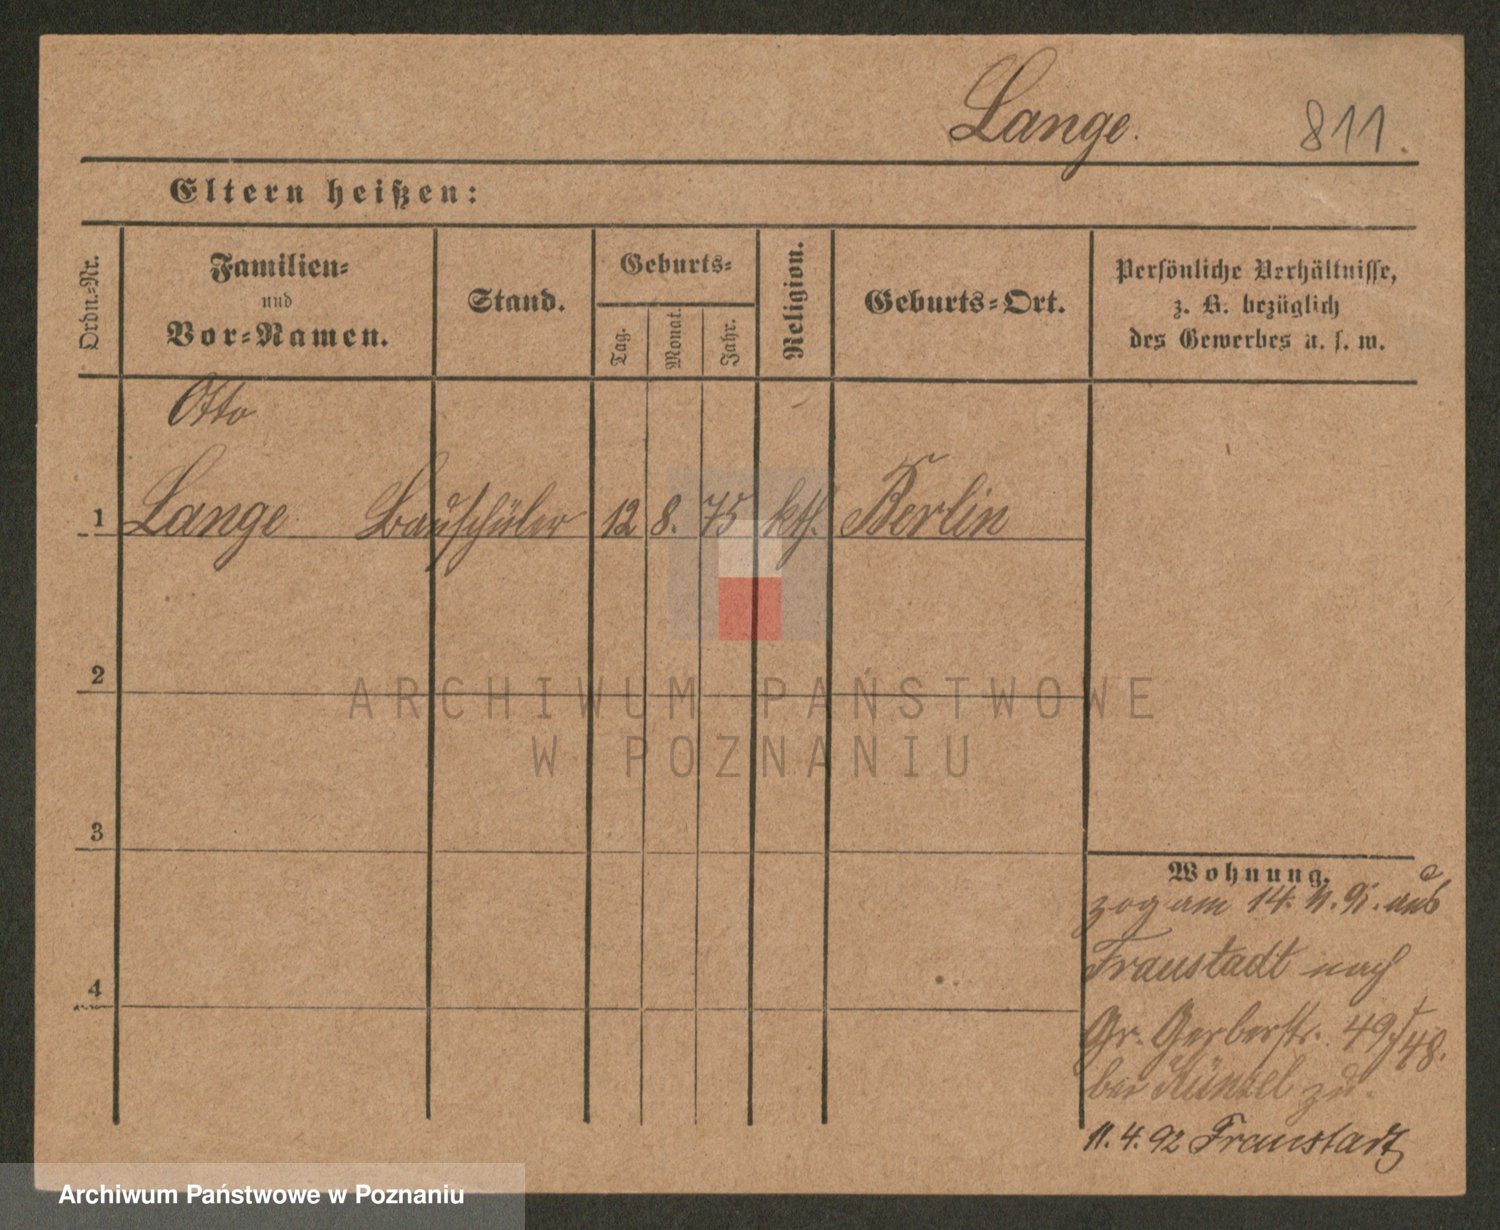 Lange.
811.
Eltern heißen:
Ordn.-Nr.
Familien-
und
Vor-Namen.
Stand.
Geburts-
Tag.
Monat.
Jahr.
Religion.
Geburts-Ort.
Persönliche Verhältnisse,
z. B. bezüglich
des Gewerbes u. s. w.
Otto
1 Lange Bauschüler 12 8. 75 kth. Berlin
2
ARCHIWUM PAŃSTWOWE
W POZNANIU
3
4
Wohnung.
zog am 14. 91. aus
Fraustadt nach
Gr. Gerberstr. 49/48.
bei Künzel zu.
11.4.92 Fraustadt
Archiwum Państwowe w Poznaniu